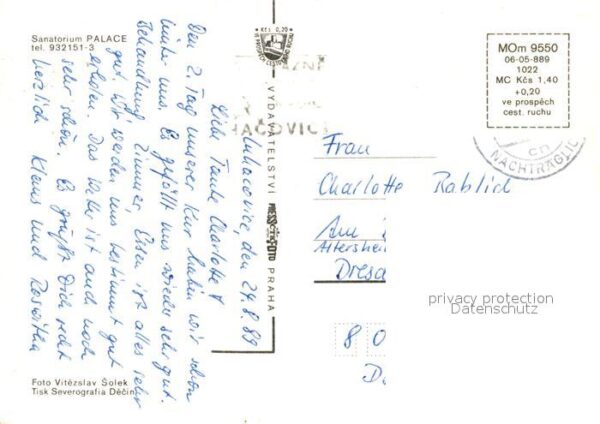 Sanatorium PALACE
tel. 932151-3
Luhacovice, den 24.8.89
Liebe Tante Charlotte!
Den 2. Tag unserer Kur haben wir schon
hinter uns. Es gefällt uns wieder sehr gut.
Behandlung, Zimmer, Essen ist alles sehr
gut. Wir werden uns bestimmt gut
erholen. Das Wetter ist auch noch
sehr schön. Es grüßt Dich recht
herzlich Klaus und Roswitha
Foto Vítězslav Šolek
Tisk Severografia Děčín
Kčs 0,20
VE PROSPĚCH CESTOVNÍHO RUCHU
VYDAVATELSTVÍ PRESSFOTO PRAHA
LÁZNĚ
HAČOVICE
MOm 9550
06-05-889
1022
MC Kčs 1,40
+0,20
ve prospěch
cest. ruchu
NACHTRÄGLICH
Frau
Charlotte Rablich
Am
Altershei
Dresd
privacy protection
Datenschutz
8 0
D